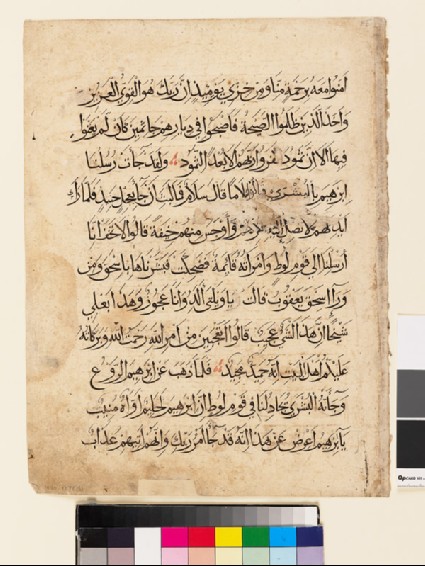 امنوا معه برحمة منا ومن خزي يوميذ ان ربك هو القوي العزيز
واخذ الذين ظلموا الصيحة فاصبحوا في ديارهم جاثمين كان لم يغنوا
فيها الا ان ثمود كفروا ربهم الا بعدا لثمود ولقد جات رسلنا
ابرهيم بالبشرى قالوا سلاما قال سلام فما لبث ان جا بعجل حنيذ فلما راى
ايديهم لا تصل اليه نكرهم واوجس منهم خيفة قالوا لا تخف انا
ارسلنا الى قوم لوط وامراته قايمة فضحكت فبشرناها باسحق ومن
ورا اسحق يعقوب قالت يا ويلتي االد وانا عجوز وهذا بعلي
شيخا ان هذا لشي عجيب قالوا اتعجبين من امر الله رحمت الله وبركاته
عليكم اهل البيت انه حميد مجيد فلما ذهب عن ابرهيم الروع
وجاته البشرى يجادلنا في قوم لوط ان ابرهيم لحليم اواه منيب
يا ابرهيم اعرض عن هذا انه قد جا امر ربك وانهم اتيهم عذاب